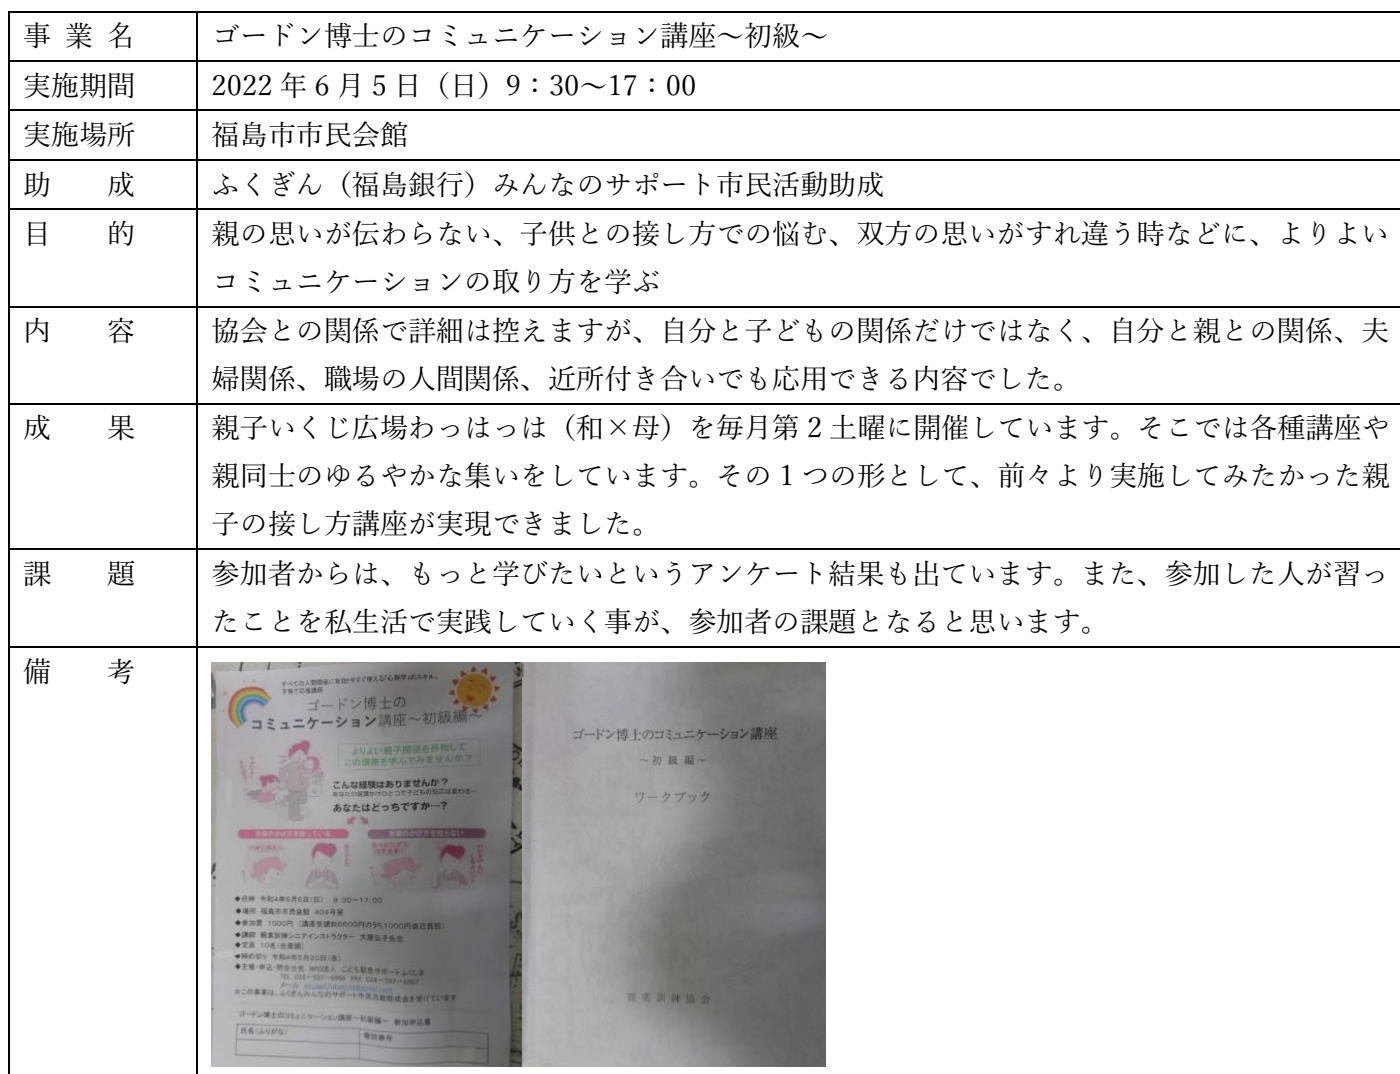 事 業 名 ゴードン博士のコミュニケーション講座～初級～
実施期間 2022 年 6 月 5 日（日）9：30～17：00
実施場所 福島市市民会館
助 成 ふくぎん（福島銀行）みんなのサポート市民活動助成
目 的 親の思いが伝わらない、子供との接し方での悩む、双方の思いがすれ違う時などに、よりよい
コミュニケーションの取り方を学ぶ
内 容 協会との関係で詳細は控えますが、自分と子どもの関係だけではなく、自分と親との関係、夫
婦関係、職場の人間関係、近所付き合いでも応用できる内容でした。
成 果 親子いくじ広場わっはっは（和×母）を毎月第 2 土曜に開催しています。そこでは各種講座や
親同士のゆるやかな集いをしています。その 1 つの形として、前々より実施してみたかった親
子の接し方講座が実現できました。
課 題 参加者からは、もっと学びたいというアンケート結果も出ています。また、参加した人が習っ
たことを私生活で実践していく事が、参加者の課題となると思います。
備 考
子育て応援講座
ゴードン博士の
コミュニケーション講座～初級編～
よりよい親子関係を目指して
この講座を学んでみませんか？
こんな経験はありませんか？
あなたはどっちですか…？
言葉のかけ方を知っている 言葉のかけ方を知らない
◆日時 令和4年6月5日(日) 9:30～17:00
◆場所 福島市市民会館 404号室
◆参加費 1000円 (講座受講料6600円のうち1000円自己負担)
◆講師 親業訓練シニアインストラクター
◆定員 10名(先着順)
◆締め切り 令和4年5月20日(金)
◆主催・申込・問合せ先 NPO法人 こども緊急サポートふくしま
※この事業は、ふくぎんみんなのサポート市民活動助成金を受けています
ゴードン博士のコミュニケーション講座～初級編～ 参加申込書
氏名(ふりがな) 電話番号
ゴードン博士のコミュニケーション講座
～初級編～
ワークブック
親業訓練協会